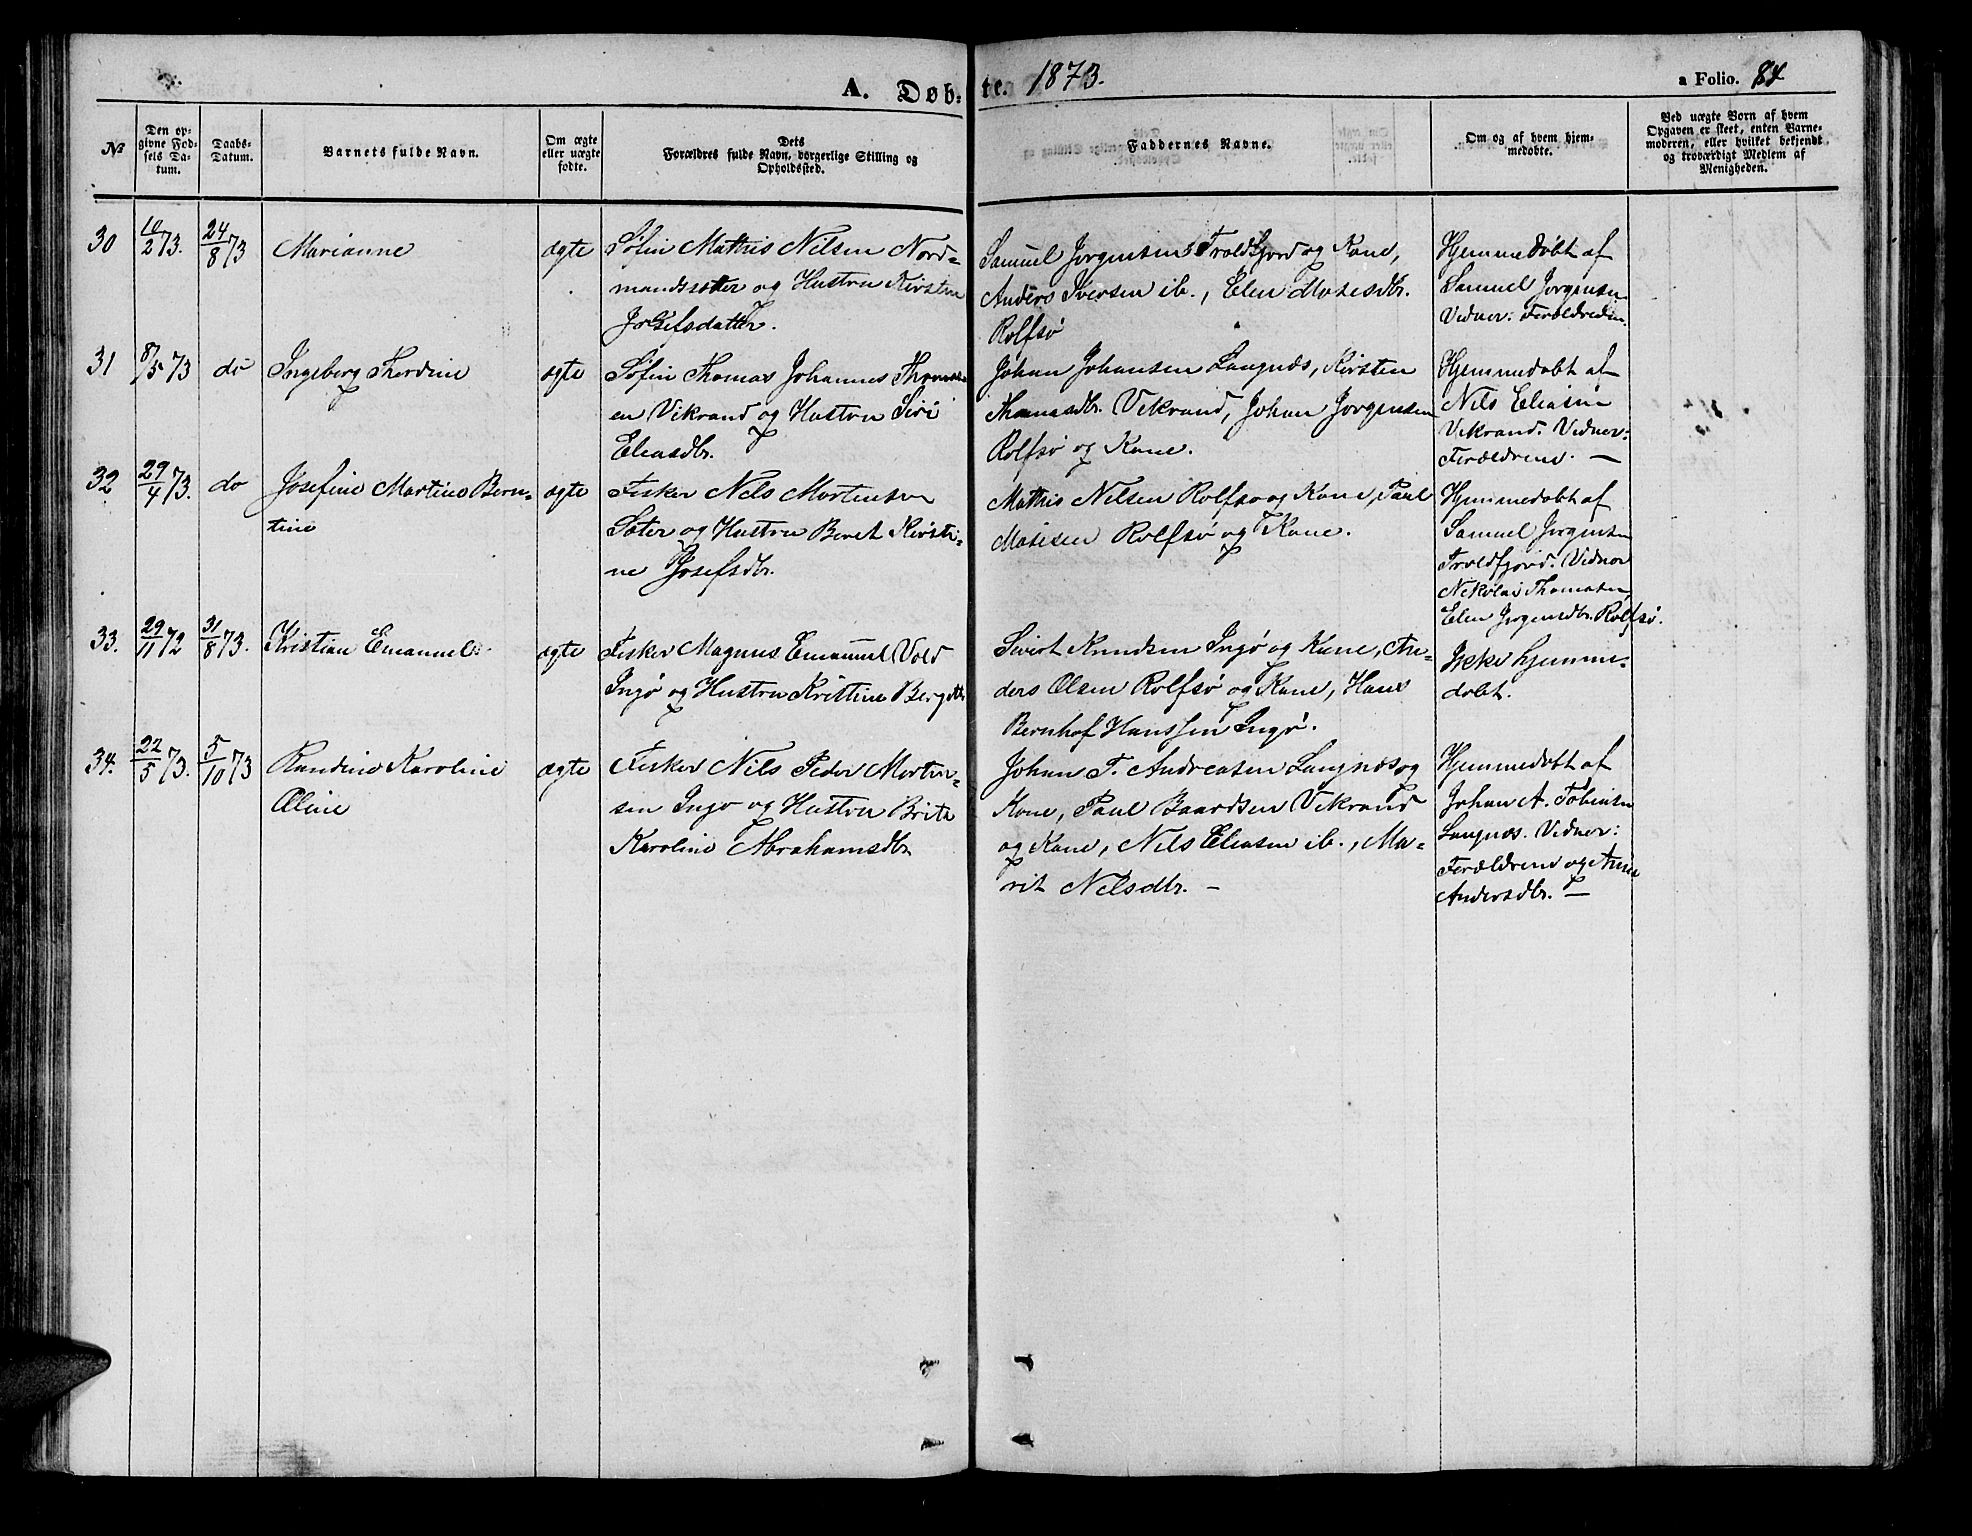 A. Døb: te. 1873.
a Folio. 84
№
Den op-
givne Fød-
sels Da-
tum.
Daabs-
Datum.
Barnets fulde Navn.
Om ægte
eller uægte
fødte.
Dets
Forældres fulde Navn, borgerlige Stilling og
Opholdssted.
Faddernes Navne.
Om og af hvem hjem-
medøbte.
Ved uægte Born af hvem
Opgaven er skeet, enten Barne-
moderen, eller hvilket bekjendt
og troværdigt Medlem af
Menigheden.
30
10/2 73.
24/8 73
Marianne
ægte
Søfin Mathis Nilsen Nord-
mandssæter og Hustru Kirsten
Josefsdatter.
Samuel Jørgensen Troldfjord og Kone,
Anders Iversen ib., Elen Mosesdtr.
Rolfsø
Hjemmedøbt af
Samuel Jørgensen
Vidner: Forældrene.
31
8/5 73
do
Ingeborg Thordine
ægte
Søfin Thomas Johannes Thomas-
en Vikrand og Hustru Siri
Eliasdtr.
Johan Johansen Langnæs, Kirsten
Thomasdtr. Vikrand, Johan Jørgensen
Rolfsø og Kone.
Hjemmedøbt af
Nils Eliasen
Vikrand. Vidner:
Forældrene. —
32
29/4 73.
do
Josefine Martine Bern-
tine
ægte
Fisker Nils Mortensen
Sæter og Hustru Beret Kirsti-
ne Josefsdtr.
Mathis Nilsen Rolfsø og Kone, Paul
Mosesen Rolfsø og Kone.
Hjemmedøbt af
Samuel Jørgensen
Troldfjord. Vidner
Nikolai Thomasen,
Elen Jørgensdtr. Rolfsø.
33.
29/11 72
31/8 73.
Kristian Emanuel
ægte
Fisker Magnus Emanuel Vold
Ingø og Hustru Kristine
Sivert Knudsen Ingø og Kone, An-
ders Olsen Rolfsø og Kone, Hans
Bernhof Hanssen Ingø.
Ikke hjemme-
døbt.
34.
22/5 73.
5/10 73
Randine Karoline
Oline
ægte
Fisker Nils Peder Morten-
sen Ingø og Hustru Brite
Karoline Abrahamsdtr.
Johan T. Andreasen Langnæs og
Kone, Paul Baardsen Vikrand
og Kone, Nils Eliasen ib., Ma-
rit Nilsdtr. —
Hjemmedøbt af
Johan A. Tobiasen
Langnæs. Vidner:
Forældrene og Anne
Andersdtr. —